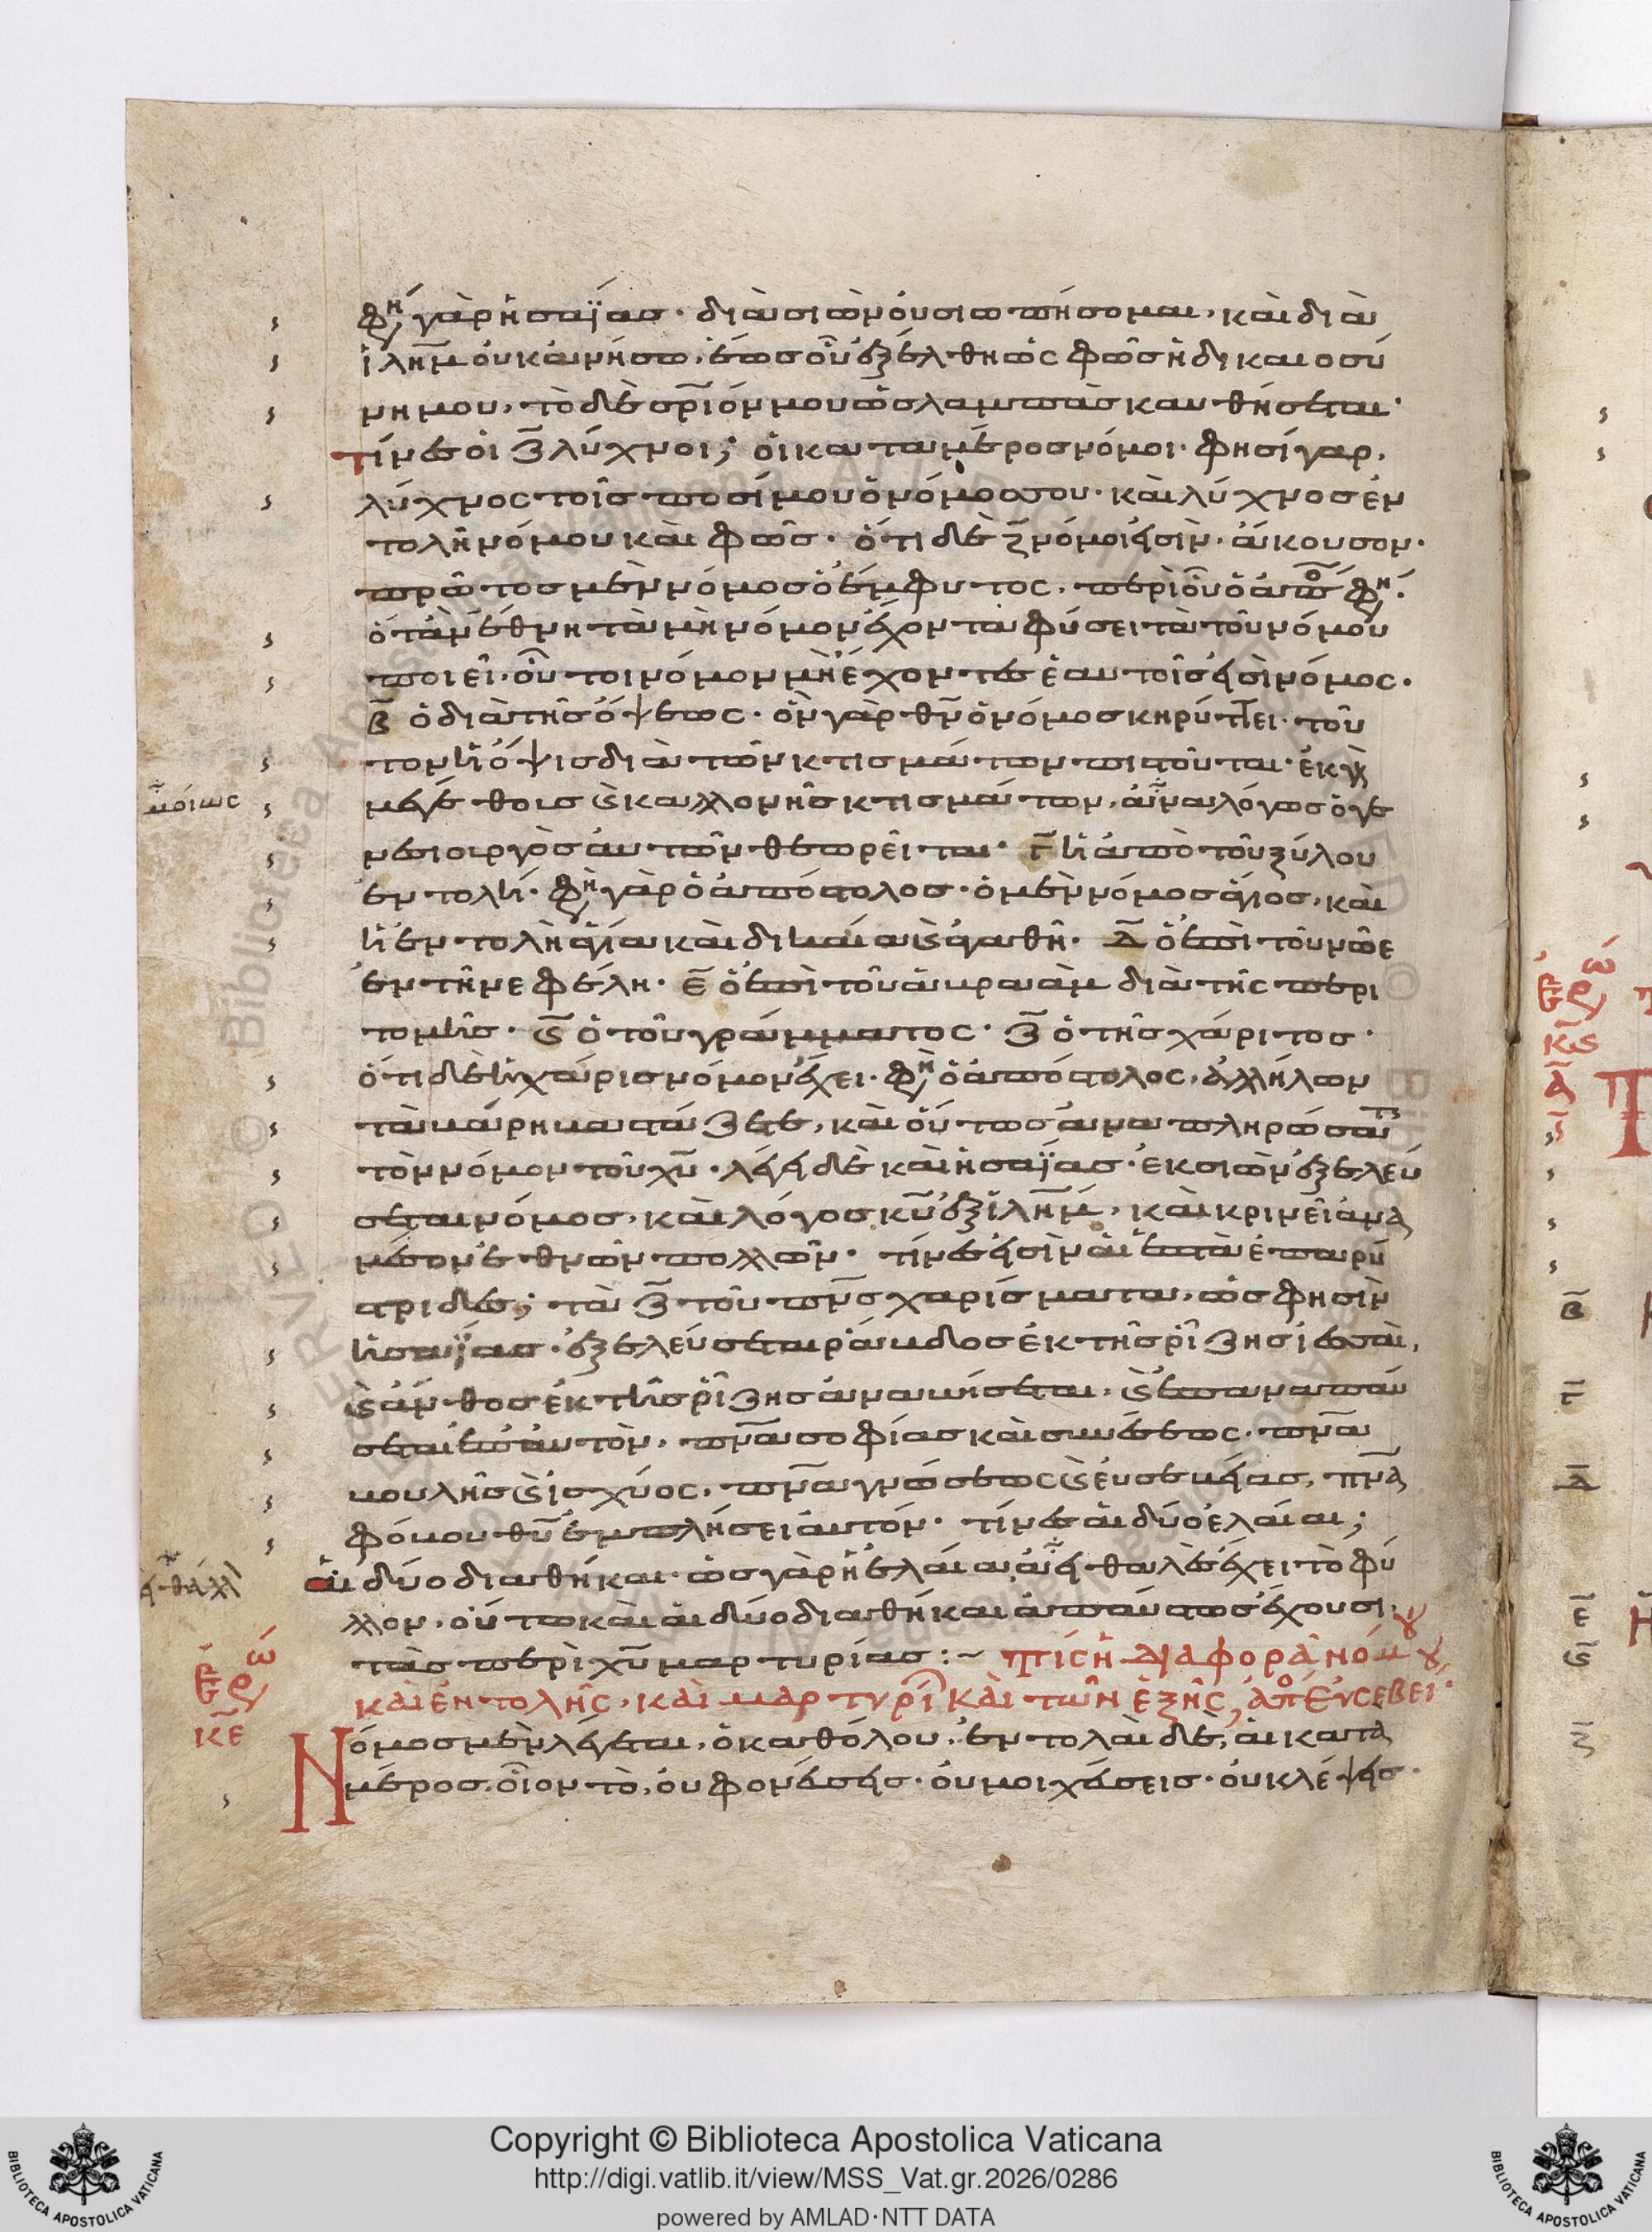 φη γὰρ ἡσαΐας· διὰ σιὼν οὐ σιωπήσομαι, καὶ διὰ
ἰλημ οὐκ ἀνήσω, ἕως οὗ ἐξέλθη ὡς φῶς ἡ δικαιοσύ
νη μου, τὸ δὲ σριόν μου ὡς λαμπὰς καυθήσεται·
τίνες οἱ ζ λύχνοι; οἱ κατα μέρος νόμοι· φησί γαρ,
λύχνος τοῖς ποσί μου ὁ νόμος σου· καὶ λύχνος ἐν
τολὴ νόμου καὶ φῶς· ὅτι δὲ ζ νόμοι εἰσὶν, ἄκουσον·
πρῶτος μὲν νόμος ὁ ἔμφυτος, περὶ οὗ ὁ ἀπο φη·
ὅταν ἔθνη τὰ μὴ νόμον ἔχοντα φύσει τὰ τοῦ νόμου
ποιεῖ, οὗτοι νόμον μὴ ἔχοντες ἑαυτοῖς εἰσὶ νόμος·
β ὁ διὰ τῆς ὄψεως· ὃν γὰρ θν ὁ νόμος κηρύττει· τοῦ
τον ἡ ὄψις διὰ τῶν κτισμάτων πιστοῦται· ἐκ γὰρ
μεγέθους καὶ καλλονῆς κτισμάτων, ἀναλόγως ὁ γε
νεσιουργὸς αὐτῶν θεωρεῖται· γ ἡ ἀπὸ τοῦ ξύλου
ἐντολή· φη γὰρ ὁ ἀπόστολος· ὁ μὲν νόμος ἅγιος, καὶ
ἡ ἐντολὴ ἁγία καὶ δικαία καὶ ἀγαθή· δ ὁ ἐπὶ τοῦ νῶε
ἐν τῆ νεφέλη· ε ὁ ἐπὶ τοῦ ἀβραὰμ διὰ τῆς περι
τομῆς· ϛ ὁ τοῦ γράμματος· ζ ὁ τῆς χάριτος·
ὅτι δὲ ἡ χάρις νόμον ἔχει· φη ὁ ἀπόστολος, ἀλλήλων
τὰ βάρη βαστάζετε, καὶ οὕτως ἀναπληρώσατε
τὸν νόμον τοῦ χυ· λέγει δὲ καὶ ἡσαΐας· ἐκ σιὼν ἐξελεύ
σεται νόμος, καὶ λόγος κυ ἐξ ἰλημ, καὶ κρινεῖ ἀνα
μέσον ἐθνῶν πολλῶν· τίνες εἰσὶν αἱ ἑπτὰ ἐπαρυ
στρίδες; τὰ ζ τοῦ πνς χαρίσματα, ὡς φησὶν
ἡσαΐας· ἐξελεύσεται ῥάβδος ἐκ τῆς ῥίζης ἰεσσαὶ,
καὶ ἄνθος ἐκ τῆς ῥίζης ἀναβήσεται, καὶ ἐπαναπαύ
σεται ἐπ αὐτὸν, πνα σοφίας καὶ συνέσεως, πνα
βουλῆς καὶ ἰσχύος, πνα γνώσεως καὶ εὐσεβείας, πνα
φόβου θυ ἐμπλήσει αὐτόν· τίνες αἱ δύο ἐλαῖαι;
αἱ δύο διαθῆκαι· ὡς γὰρ ἡ ἐλαία ἀειθαλὲς ἔχει τὸ φύ
λλον, οὕτω καὶ αἱ δύο διαθῆκαι ἁπαύστως ἔχουσι
τὰς περὶ χυ μαρτυρίας:~ τίς ἡ διαφορὰ νόμου
καὶ ἐντολῆς, καὶ μαρτυρί καὶ τῶν ἑξῆς, ἀπο εὐσεβεί·
Νόμος μὲν λέγεται, ὁ καθόλου, ἐντολαὶ δὲ, αἱ κατὰ
μέρος. οἷον τὸ, οὐ φονεύσεις· οὐ μοιχεύσεις· οὐ κλέψεις·
ὁμοίως
ἀειθαλλ
ἐρω
κε
Copyright © Biblioteca Apostolica Vaticana
http://digi.vatlib.it/view/MSS_Vat.gr.2026/0286
powered by AMLAD·NTT DATA
BIBLIOTECA APOSTOLICA VATICANA
BIBLIOTECA APOSTOLICA VATICANA